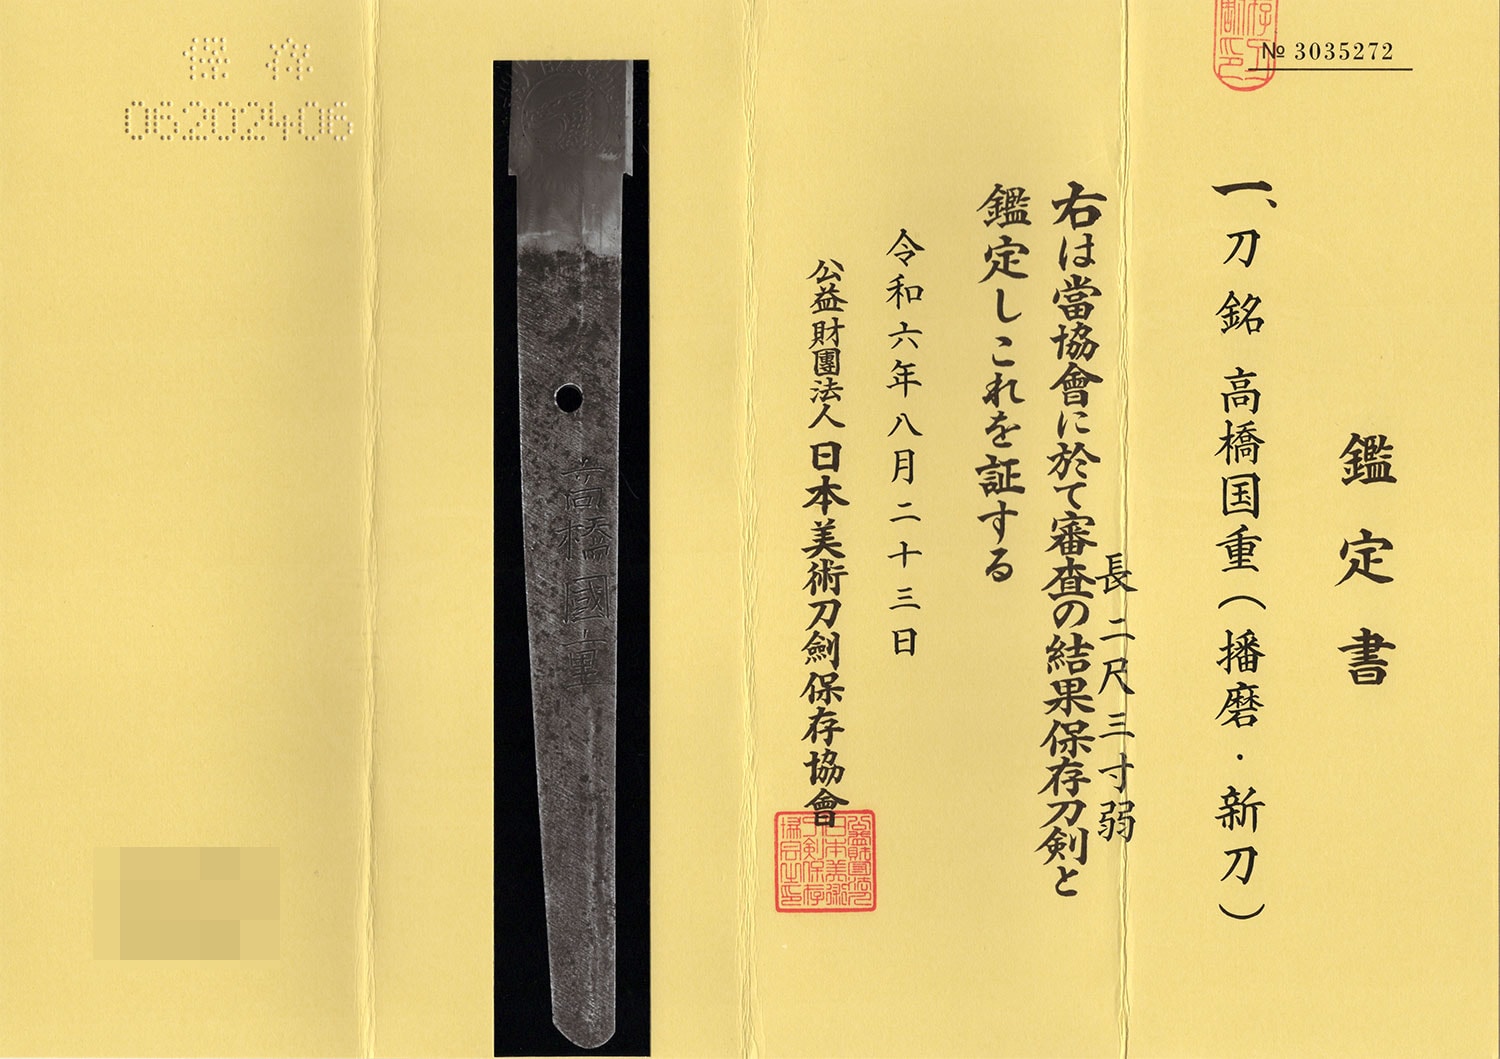 № 3035272
鑑定書
一、刀 銘 高橋国重(播磨・新刀)
長 二尺三寸弱
右は當協會に於て審査の結果保存刀剣と
鑑定しこれを証する
令和六年八月二十三日
公益財團法人 日本美術刀劍保存協會
高橋國重
保存
06202406